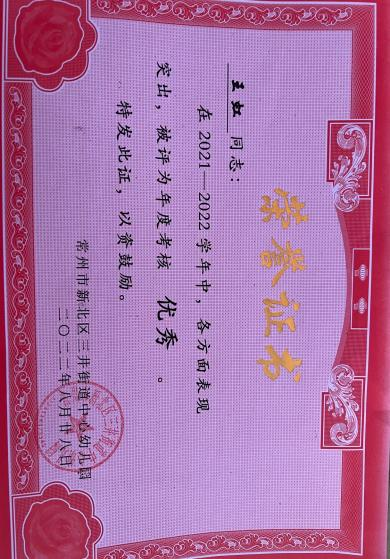 荣誉证书
王虹 同志：
在2021—2022学年中，各方面表现
突出，被评为年度考核 优秀 。
特发此证，以资鼓励。
常州市新北区三井街道中心幼儿园
二〇二二年八月廿八日